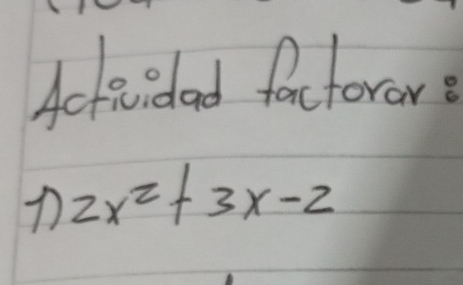 Actividad factorar:
1) 2x² + 3x - 2